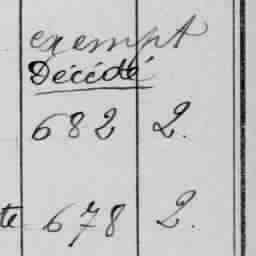 exempt
Décédé
682 2.
te 678 2.